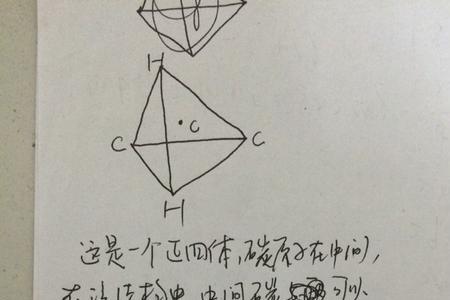 H
C
C
C
H
这是一个正四体,碳原子在中间,
在这结构中 中间碳 可以